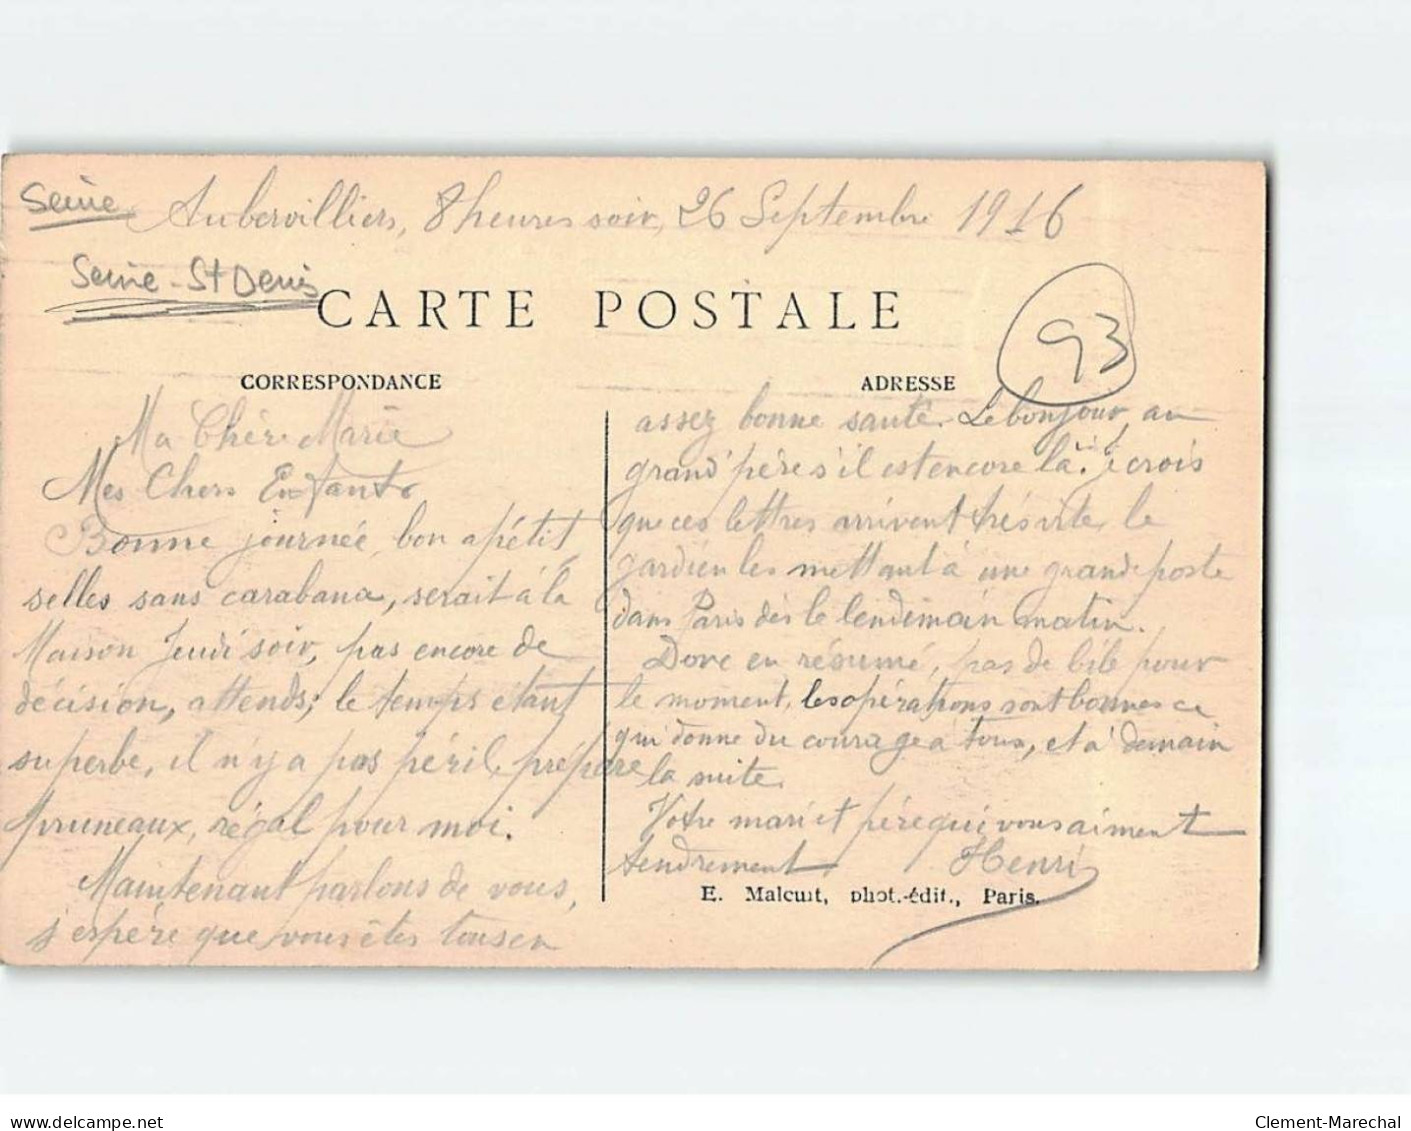 Seine Aubervilliers, 8 heures soir, 26 Septembre 1916
Seine-St Denis
CARTE POSTALE
93
CORRESPONDANCE
ADRESSE
Ma Chère Marie
Mes Chers Enfants
Bonne journée, bon apétit,
selles sans carabana, serait à la
Maison Jeudi soir, pas encore de
décision, attends; le temps étant
superbe, il n'y a pas péril, prépare
pruneaux, régal pour moi.
Maintenant parlons de vous,
j'espère que vous êtes tous en
assez bonne santé. Le bonjour au
grand'père s'il est encore là. je crois
que ces lettres arrivent très vite, le
gardien les mettant à une grande poste
dans Paris dès le lendemain matin.
Donc en résumé, pas de bile pour
le moment, les opérations sont bonnes ce
qui donne du courage à tous, et à demain
la suite.
Votre mari et père qui vous aiment
tendrement Henri
E. Malcuit, phot.-édit., Paris.
www.delcampe.net
Clement-Marechal